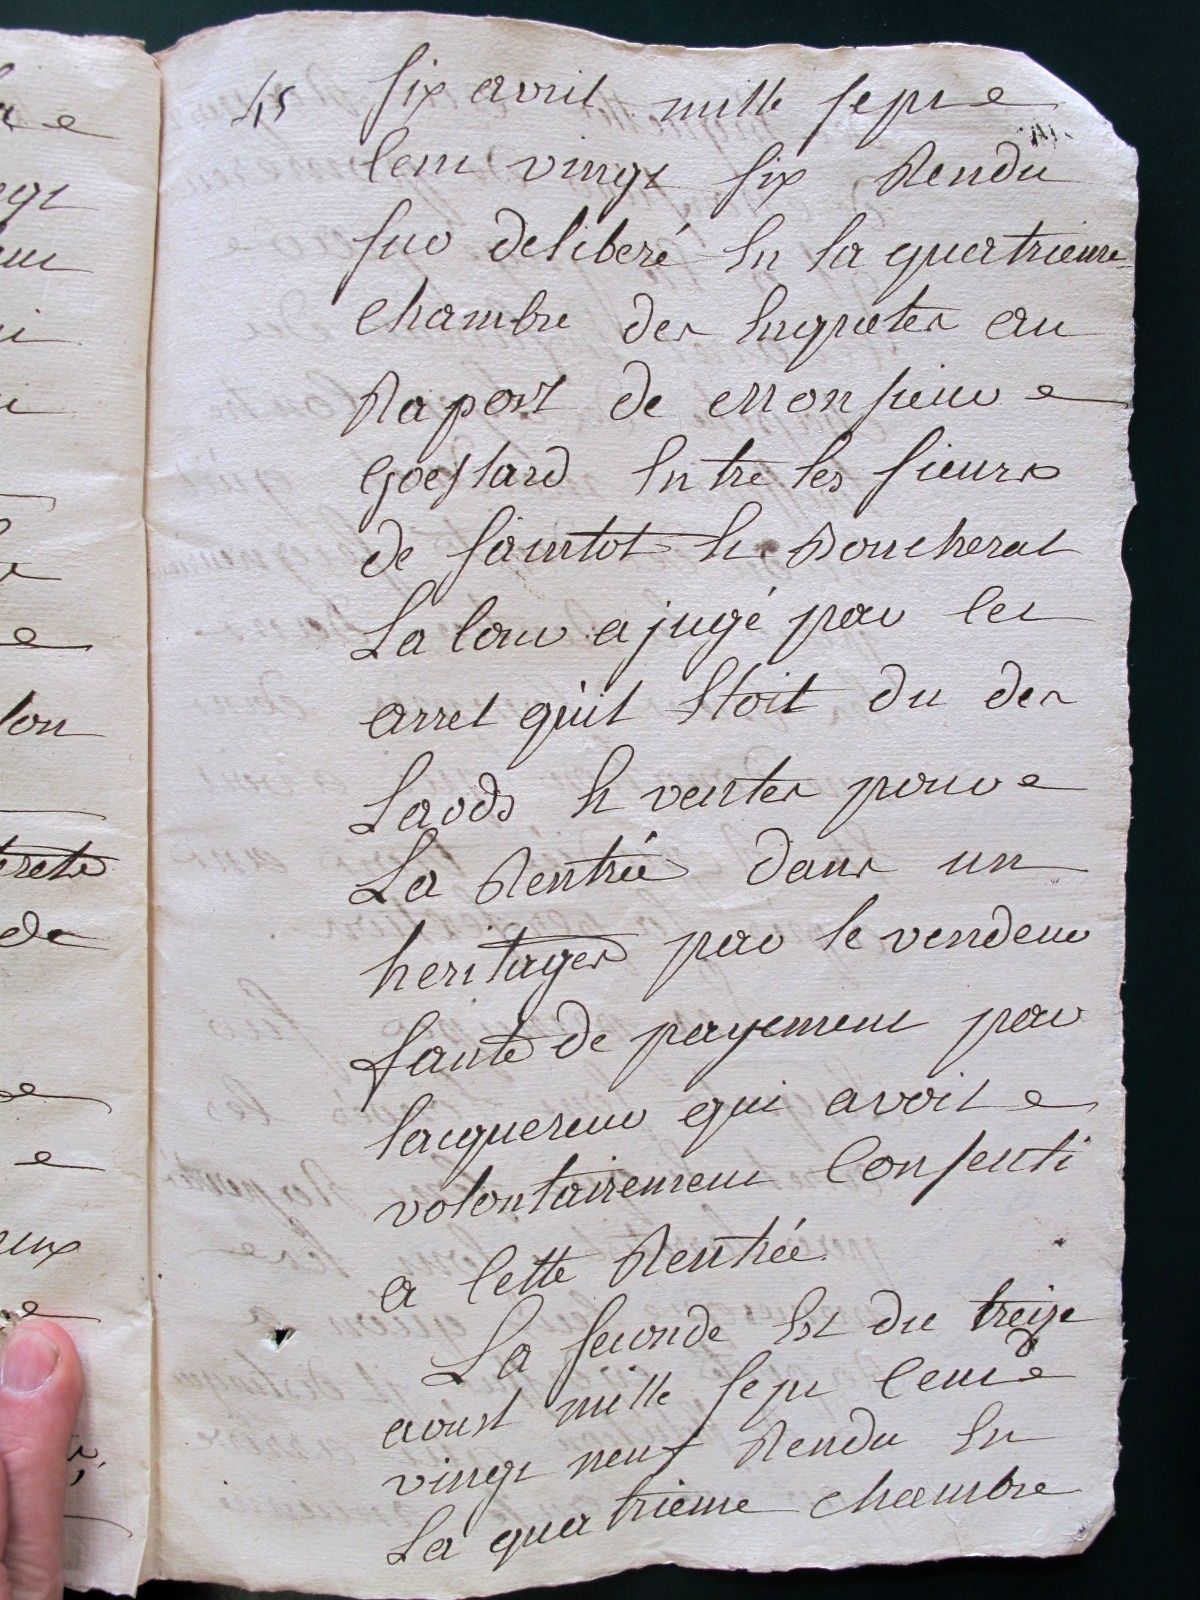 45
six avril mille sept
cent vingt six Rendu
sur deliberé En la quatrieme
chambre des Enquetes au
Raport de Monsieur
Goeslard Entre les sieurs
de saintot Et Boucherat
La Cour a jugé par cet
arret qu'il Etoit du des
Laods Et ventes pour
La Rentrée dans un
heritages par le vendeur
faute de payement par
lacquereur qui avoit
volontairement Consenti
a Cette Rentrée.
La seconde Est du treize
aoust mille sept Cent
vingt neuf Rendu En
La quatrieme chambre